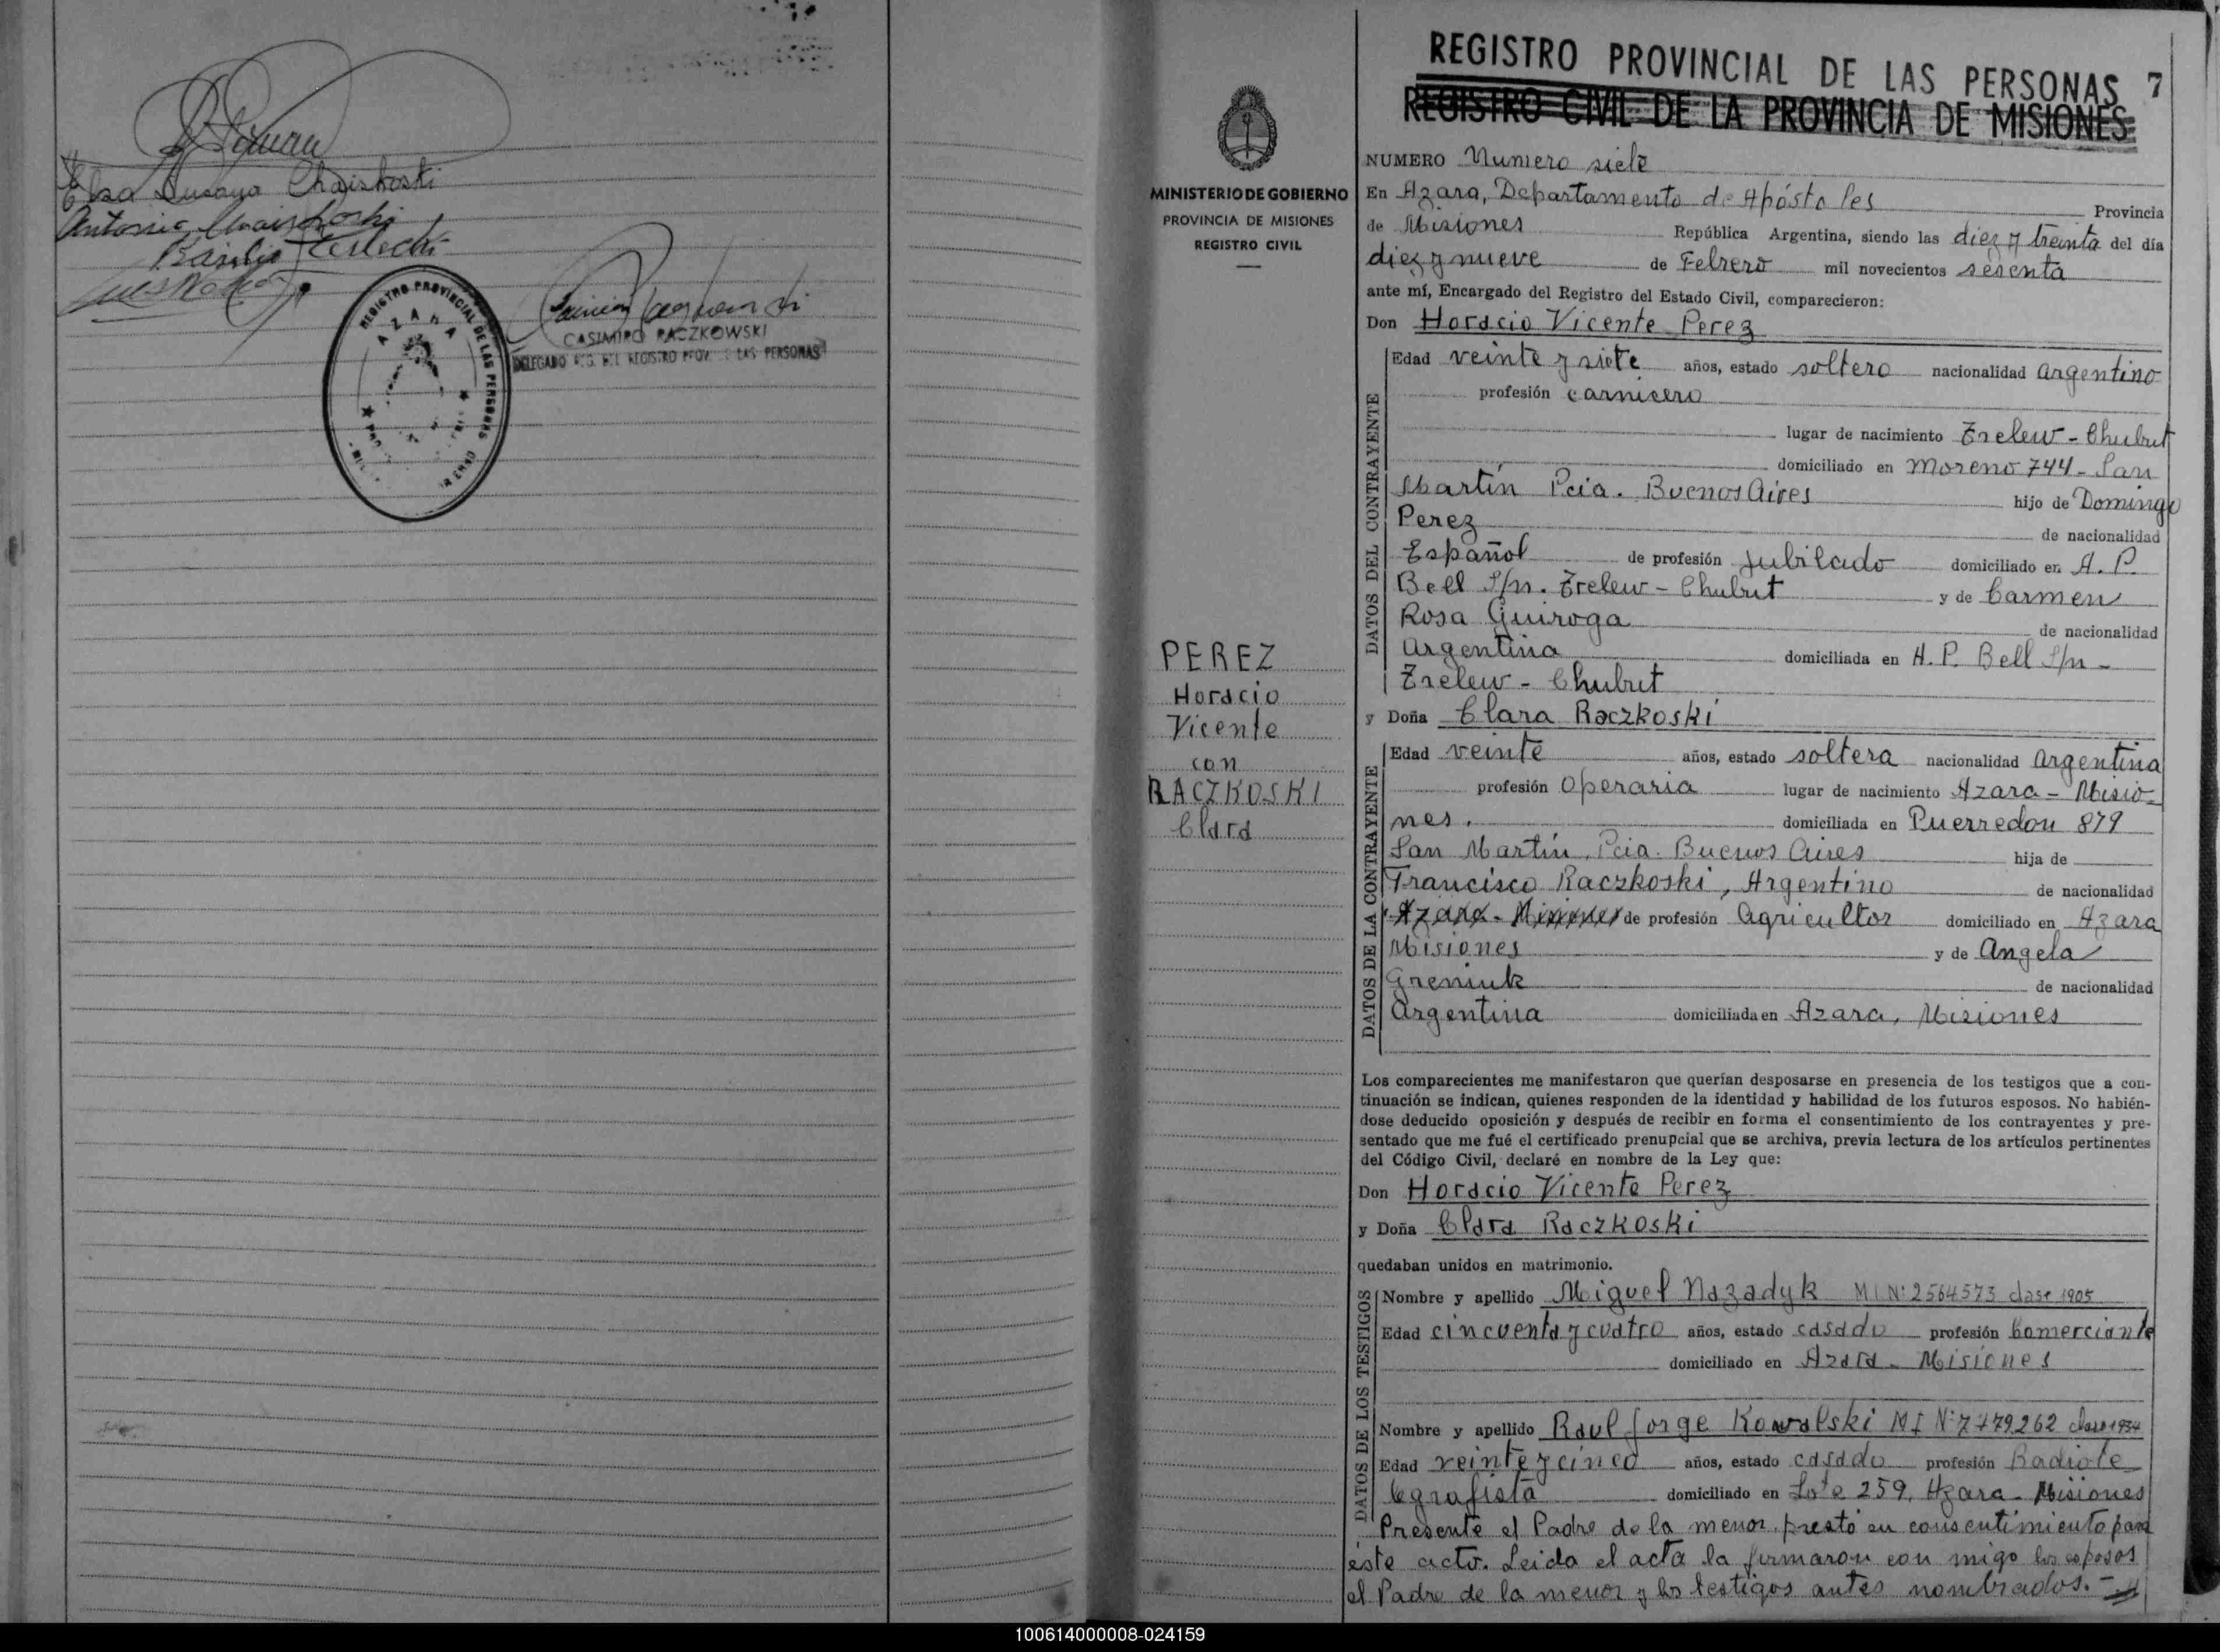 Elsa Susana Chaiskoski
Antonio Chaiskoski
Basilio
REGISTRO PROVINCIAL DE LAS PERSONAS
AZARA
CASIMIRO RACZKOWSKI
DELEGADO REG. DEL REGISTRO PROV. DE LAS PERSONAS
MINISTERIO DE GOBIERNO
PROVINCIA DE MISIONES
REGISTRO CIVIL
PEREZ
Horacio
Vicente
con
RACZKOSKI
Clara
REGISTRO PROVINCIAL DE LAS PERSONAS 7
REGISTRO CIVIL DE LA PROVINCIA DE MISIONES
NUMERO Numero siete
En Azara, Departamento de Apóstoles Provincia
de Misiones República Argentina, siendo las diez y treinta del día
diez y nueve de Febrero mil novecientos sesenta
ante mí, Encargado del Registro del Estado Civil, comparecieron:
Don Horacio Vicente Perez
DATOS DEL CONTRAYENTE
Edad veinte y siete años, estado soltero nacionalidad argentino
profesión carnicero
lugar de nacimiento Trelew - Chubut
domiciliado en Moreno 744 - San
Martín Pcia. Buenos Aires hijo de Domingo
Perez de nacionalidad
Español de profesión Jubilado domiciliado en A. P.
Bell S/n. Trelew - Chubut y de Carmen
Rosa Quiroga de nacionalidad
Argentina domiciliada en A. P. Bell S/n -
Trelew - Chubut
y Doña Clara Raczkoski
DATOS DE LA CONTRAYENTE
Edad veinte años, estado soltera nacionalidad argentina
profesión operaria lugar de nacimiento Azara - Misio-
nes. domiciliada en Puerredon 879
San Martín, Pcia. Buenos Aires hija de
Francisco Raczkoski, Argentino de nacionalidad
Azara - Misiones de profesión Agricultor domiciliado en Azara
Misiones y de Angela
Greniuk de nacionalidad
Argentina domiciliada en Azara, Misiones
Los comparecientes me manifestaron que querían desposarse en presencia de los testigos que a con-
tinuación se indican, quienes responden de la identidad y habilidad de los futuros esposos. No habién-
dose deducido oposición y después de recibir en forma el consentimiento de los contrayentes y pre-
sentado que me fué el certificado prenupcial que se archiva, previa lectura de los artículos pertinentes
del Código Civil, declaré en nombre de la Ley que:
Don Horacio Vicente Perez
y Doña Clara Raczkoski
quedaban unidos en matrimonio.
DATOS DE LOS TESTIGOS
Nombre y apellido Miguel Nazadyk M I N° 2564573 clase 1905
Edad cincuenta y cuatro años, estado casado profesión Comerciante
domiciliado en Azara - Misiones
Nombre y apellido Raul Jorge Kowalski M I N° 7479262 clase 1934
Edad veinte y cinco años, estado casado profesión Radiote
legrafista domiciliado en Lote 259, Azara - Misiones
Presente el Padre de la menor, prestó su consentimiento para
este acto. Leida el acta la firmaron con migo los esposos
el Padre de la menor y los testigos antes nombrados. -
100614000008-024159